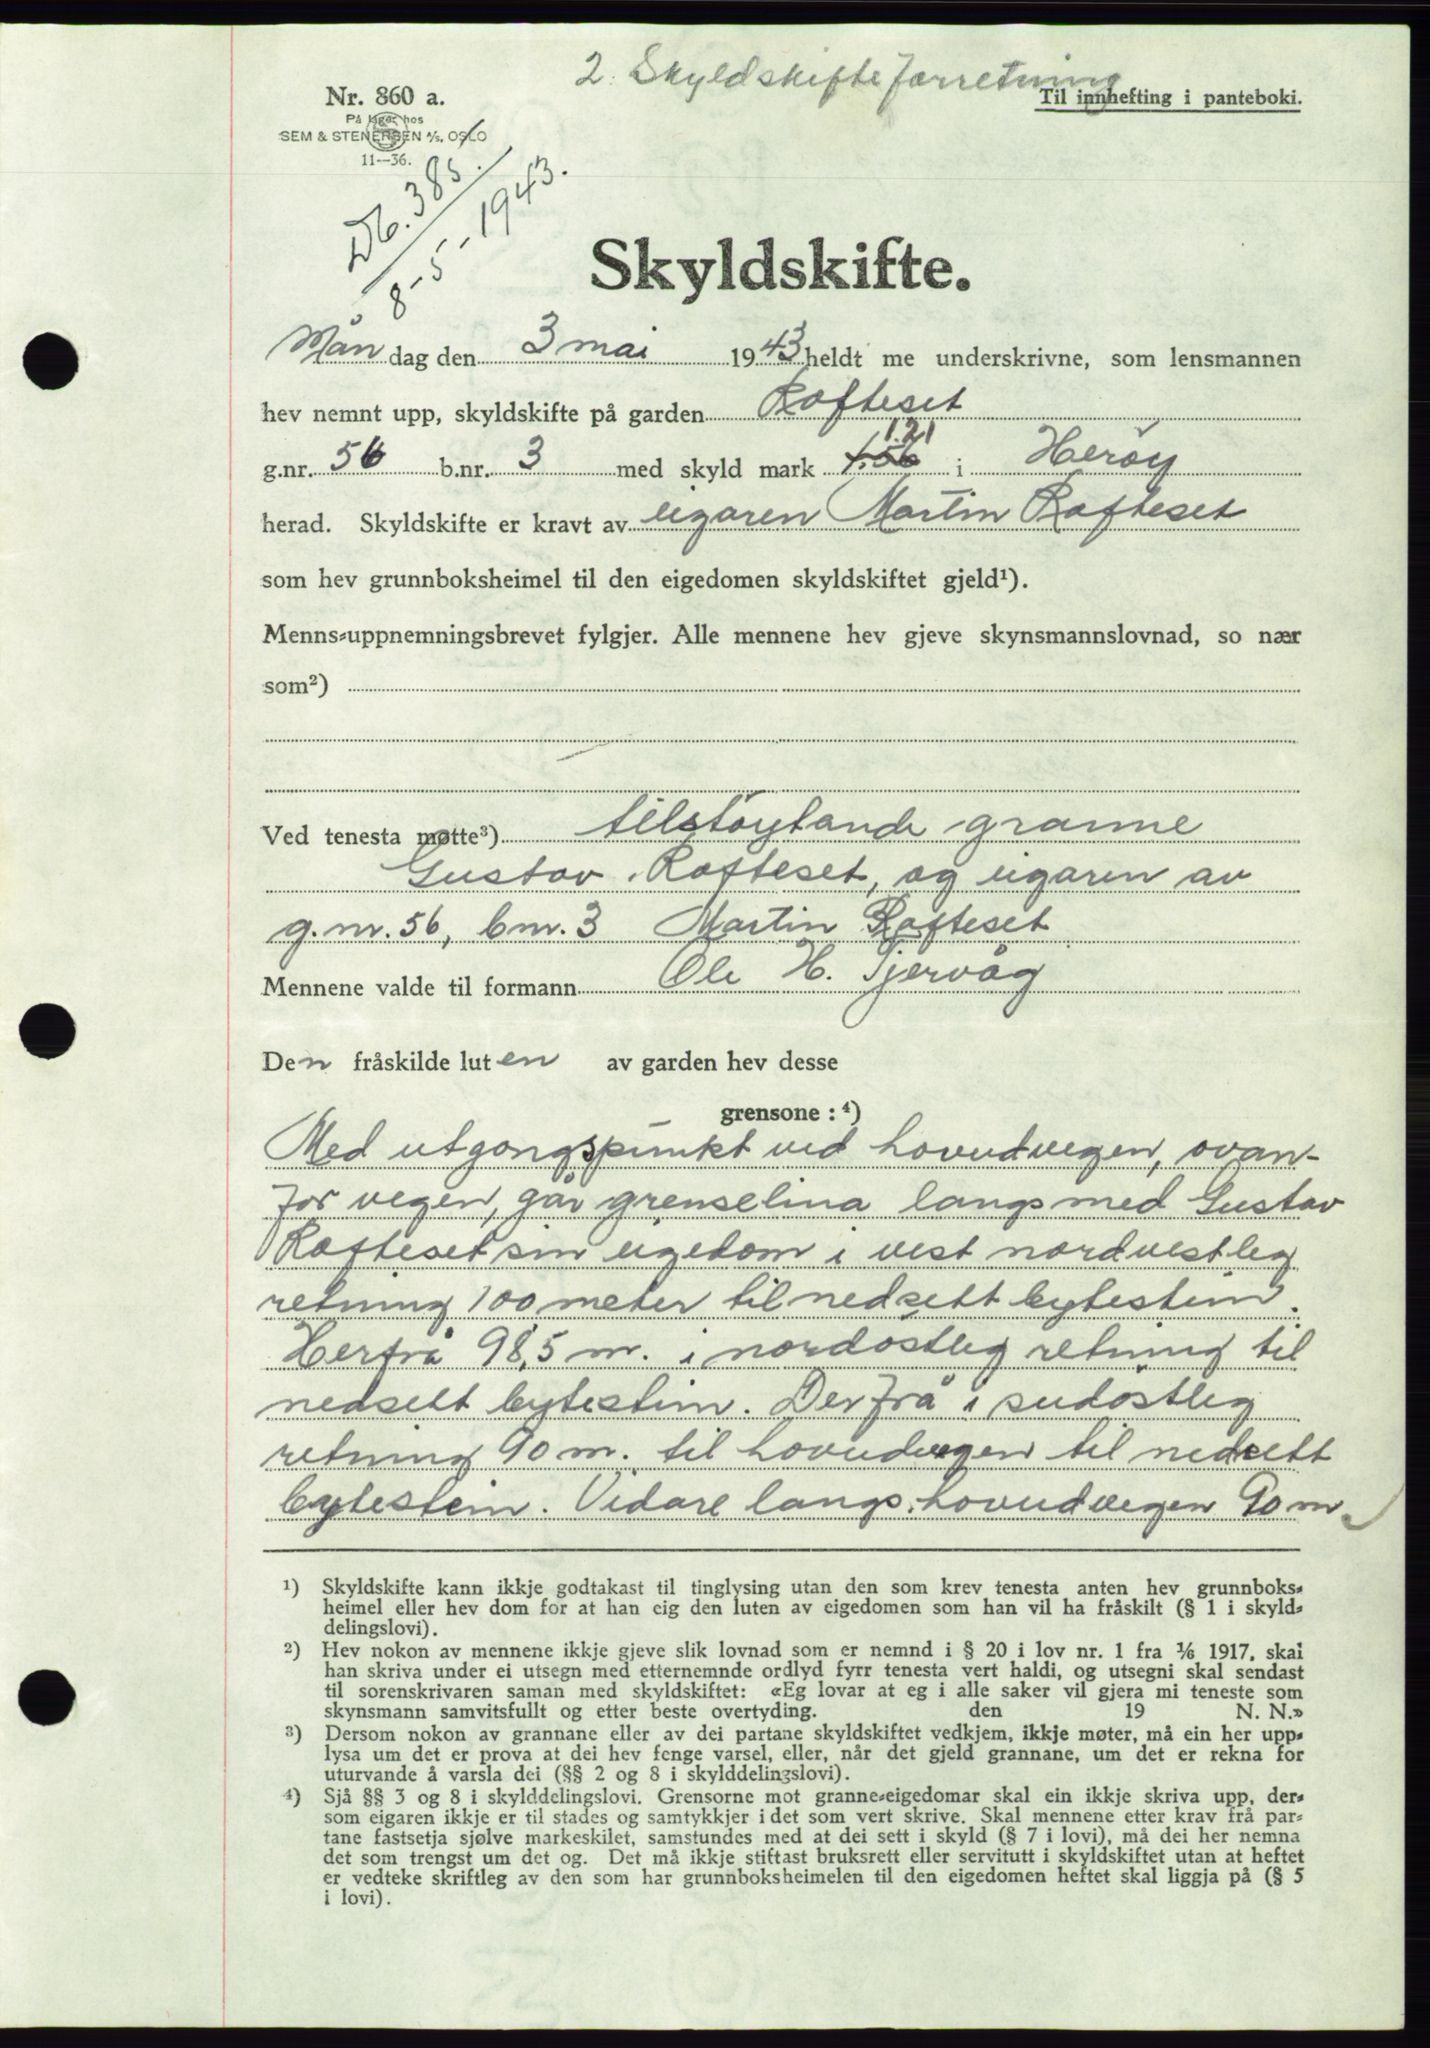 2. Skyldskifteforretning
Nr. 860 a.
Til innhefting i panteboki.
På lager hos
SEM & STENERSEN A/S, OSLO
11—36.
Db. 385/
8-5-1943.
Skyldskifte.
Måndag den 3 mai 1943 heldt me underskrivne, som lensmannen
hev nemnt upp, skyldskifte på garden Rafteset
1.21
g.nr. 56 b.nr. 3 med skyld mark 1.56 i Herøy
herad. Skyldskifte er kravt av eigaren Martin Rafteset
som hev grunnboksheimel til den eigedomen skyldskiftet gjeld¹).
Menns-uppnemningsbrevet fylgjer. Alle mennene hev gjeve skynsmannslovnad, so nær
som²)
Ved tenesta møtte³) tilstøytande granne
Gustav Rafteset, og eigaren av
g.nr. 56, bnr. 3 Martin Rafteset
Mennene valde til formann Ole H. Tjervåg
Den fråskilde luten av garden hev desse
grensone : ⁴)
Med utgongspunkt ved hovudvegen, ovan-
for vegen, går grenselina langs med Gustav
Rafteset sin eigedom i vest nordvestleg
retning 100 meter til nedsett bytestein.
Herfrå 98,5 m. i nordöstleg retning til
nedsett bytestein. Derfrå i sudöstleg
retning 90 m. til hovudvegen til nedsett
bytestein. Vidare langs hovudvegen 90 m
¹) Skyldskifte kann ikkje godtakast til tinglysing utan den som krev tenesta anten hev grunnboks-
heimel eller hev dom for at han eig den luten av eigedomen som han vil ha fråskilt (§ 1 i skyld-
delingslovi).
²) Hev nokon av mennene ikkje gjeve slik lovnad som er nemnd i § 20 i lov nr. 1 fra ¹/₆ 1917, skal
han skriva under ei utsegn med etternemnde ordlyd fyrr tenesta vert haldi, og utsegni skal sendast
til sorenskrivaren saman med skyldskiftet: «Eg lovar at eg i alle saker vil gjera mi teneste som
skynsmann samvitsfullt og etter beste overtyding. den 19 N. N.»
³) Dersom nokon av grannane eller av dei partane skyldskiftet vedkjem, ikkje møter, må ein her upp-
lysa um det er prova at dei hev fenge varsel, eller, når det gjeld grannane, um det er rekna for
uturvande å varsla dei (§§ 2 og 8 i skylddelingslovi).
⁴) Sjå §§ 3 og 8 i skylddelingslovi. Grensorne mot granne-eigedomar skal ein ikkje skriva upp, der-
som eigaren ikkje er til stades og samtykkjer i det som vert skrive. Skal mennene etter krav frå par-
tane fastsetja sjølve markeskilet, samstundes med at dei sett i skyld (§ 7 i lovi), må dei her nemna
det som trengst um det og. Det må ikkje stiftast bruksrett eller servitutt i skyldskiftet utan at heftet
er vedteke skriftleg av den som har grunnboksheimelen til den eigedomen heftet skal liggja på (§ 5
i lovi).